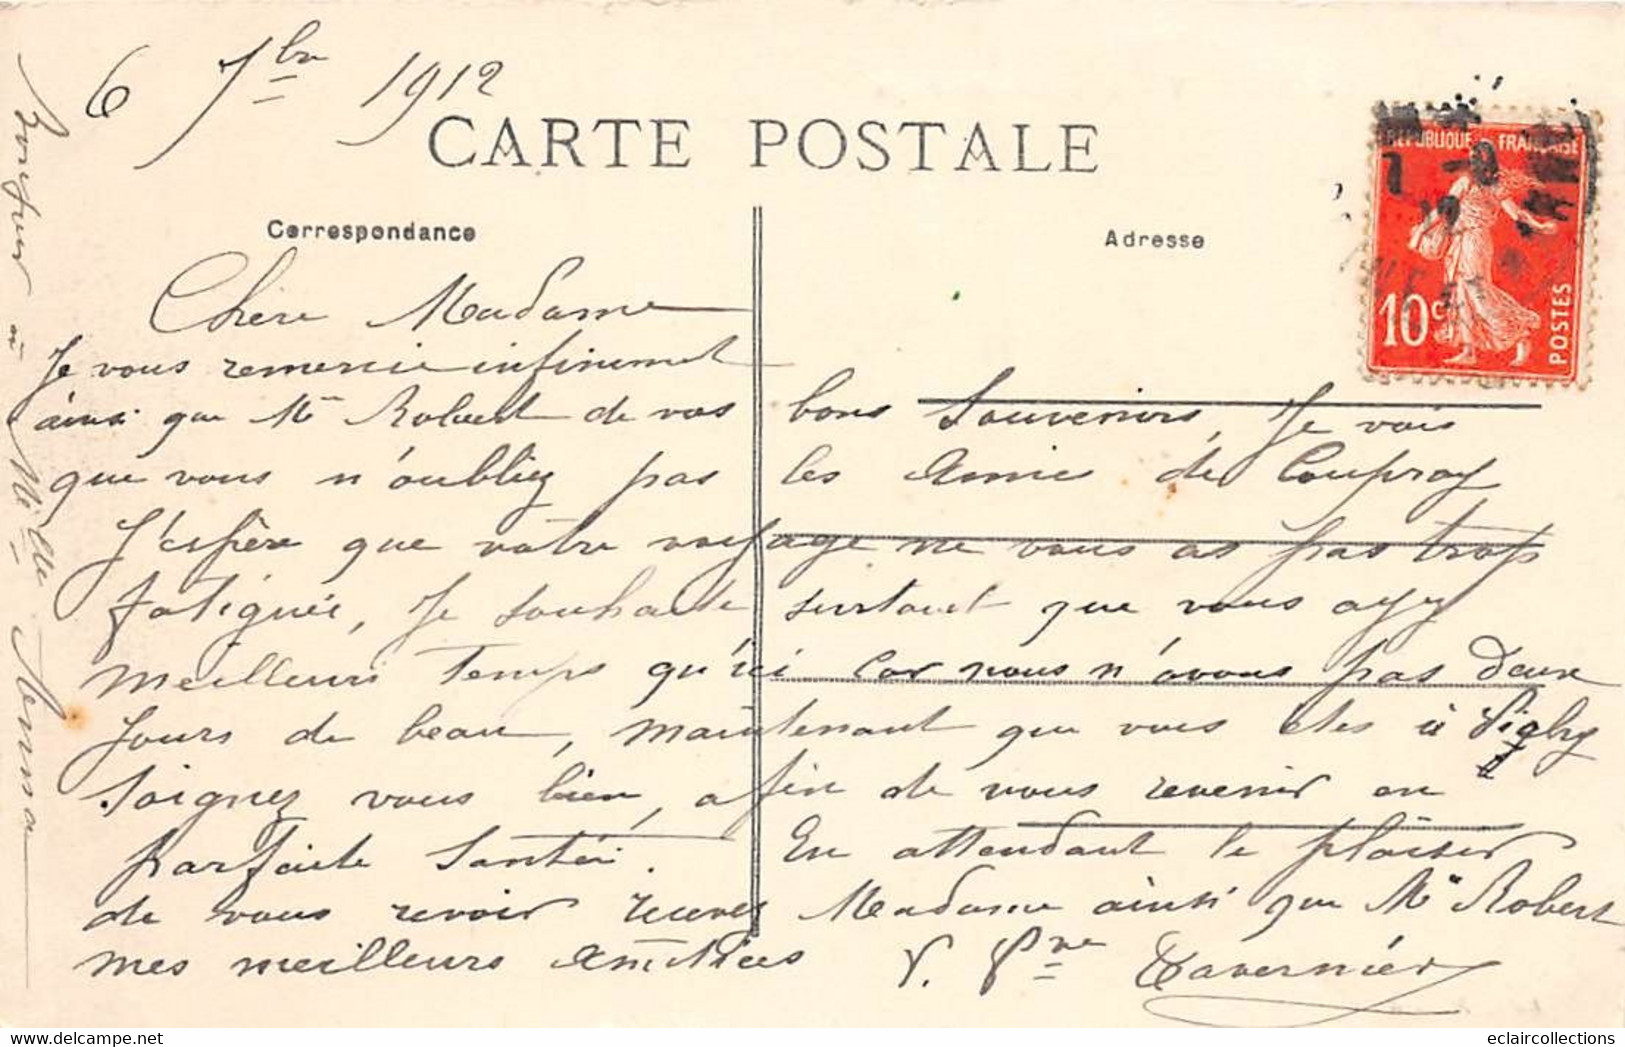 6 7bre 1912
CARTE POSTALE
Correspondance
Adresse
REPUBLIQUE FRANÇAISE
10c
POSTES
Chère Madame
Je vous remercie infiniment
ainsi que Mr Robert de vos bons Souvenirs, Je vois
que vous n'oubliez pas les Amies de Coupray
J'espère que votre voyage ne vous as pas trop
fatiguée, Je souhaite surtout que vous ayez
meilleurs Temps qu'ici car nous n'avons pas deux
Jours de beau, maintenant que vous êtes à
Soignez vous bien, afin de vous revenir en
parfaite Santée. En attendant le plaisir
de vous revoir recevez Madame ainsi que Mr Robert
mes meilleurs Amitiées V. Tavernier
Bonjour à Melle
eclaircollections